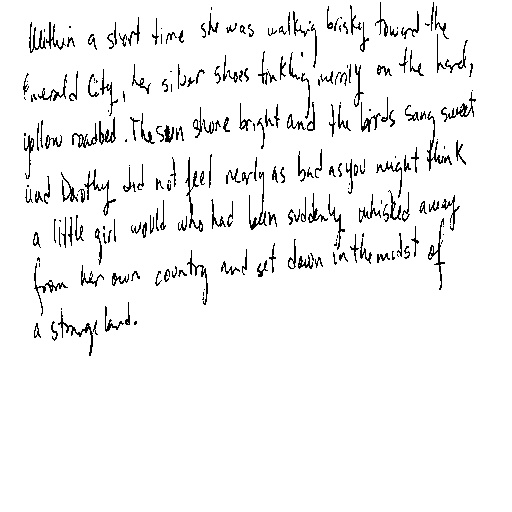 Within a short time she was walking brisky toward the
Emerald City, her silver shoes tinkling merrily on the hard,
yellow roadbed. The sun shone bright and the birds sang sweet
and Dorothy did not feel nearly as bad as you might think
a little girl would who had been suddenly whisked away
from her own country and set down in the midst of
a strange land.